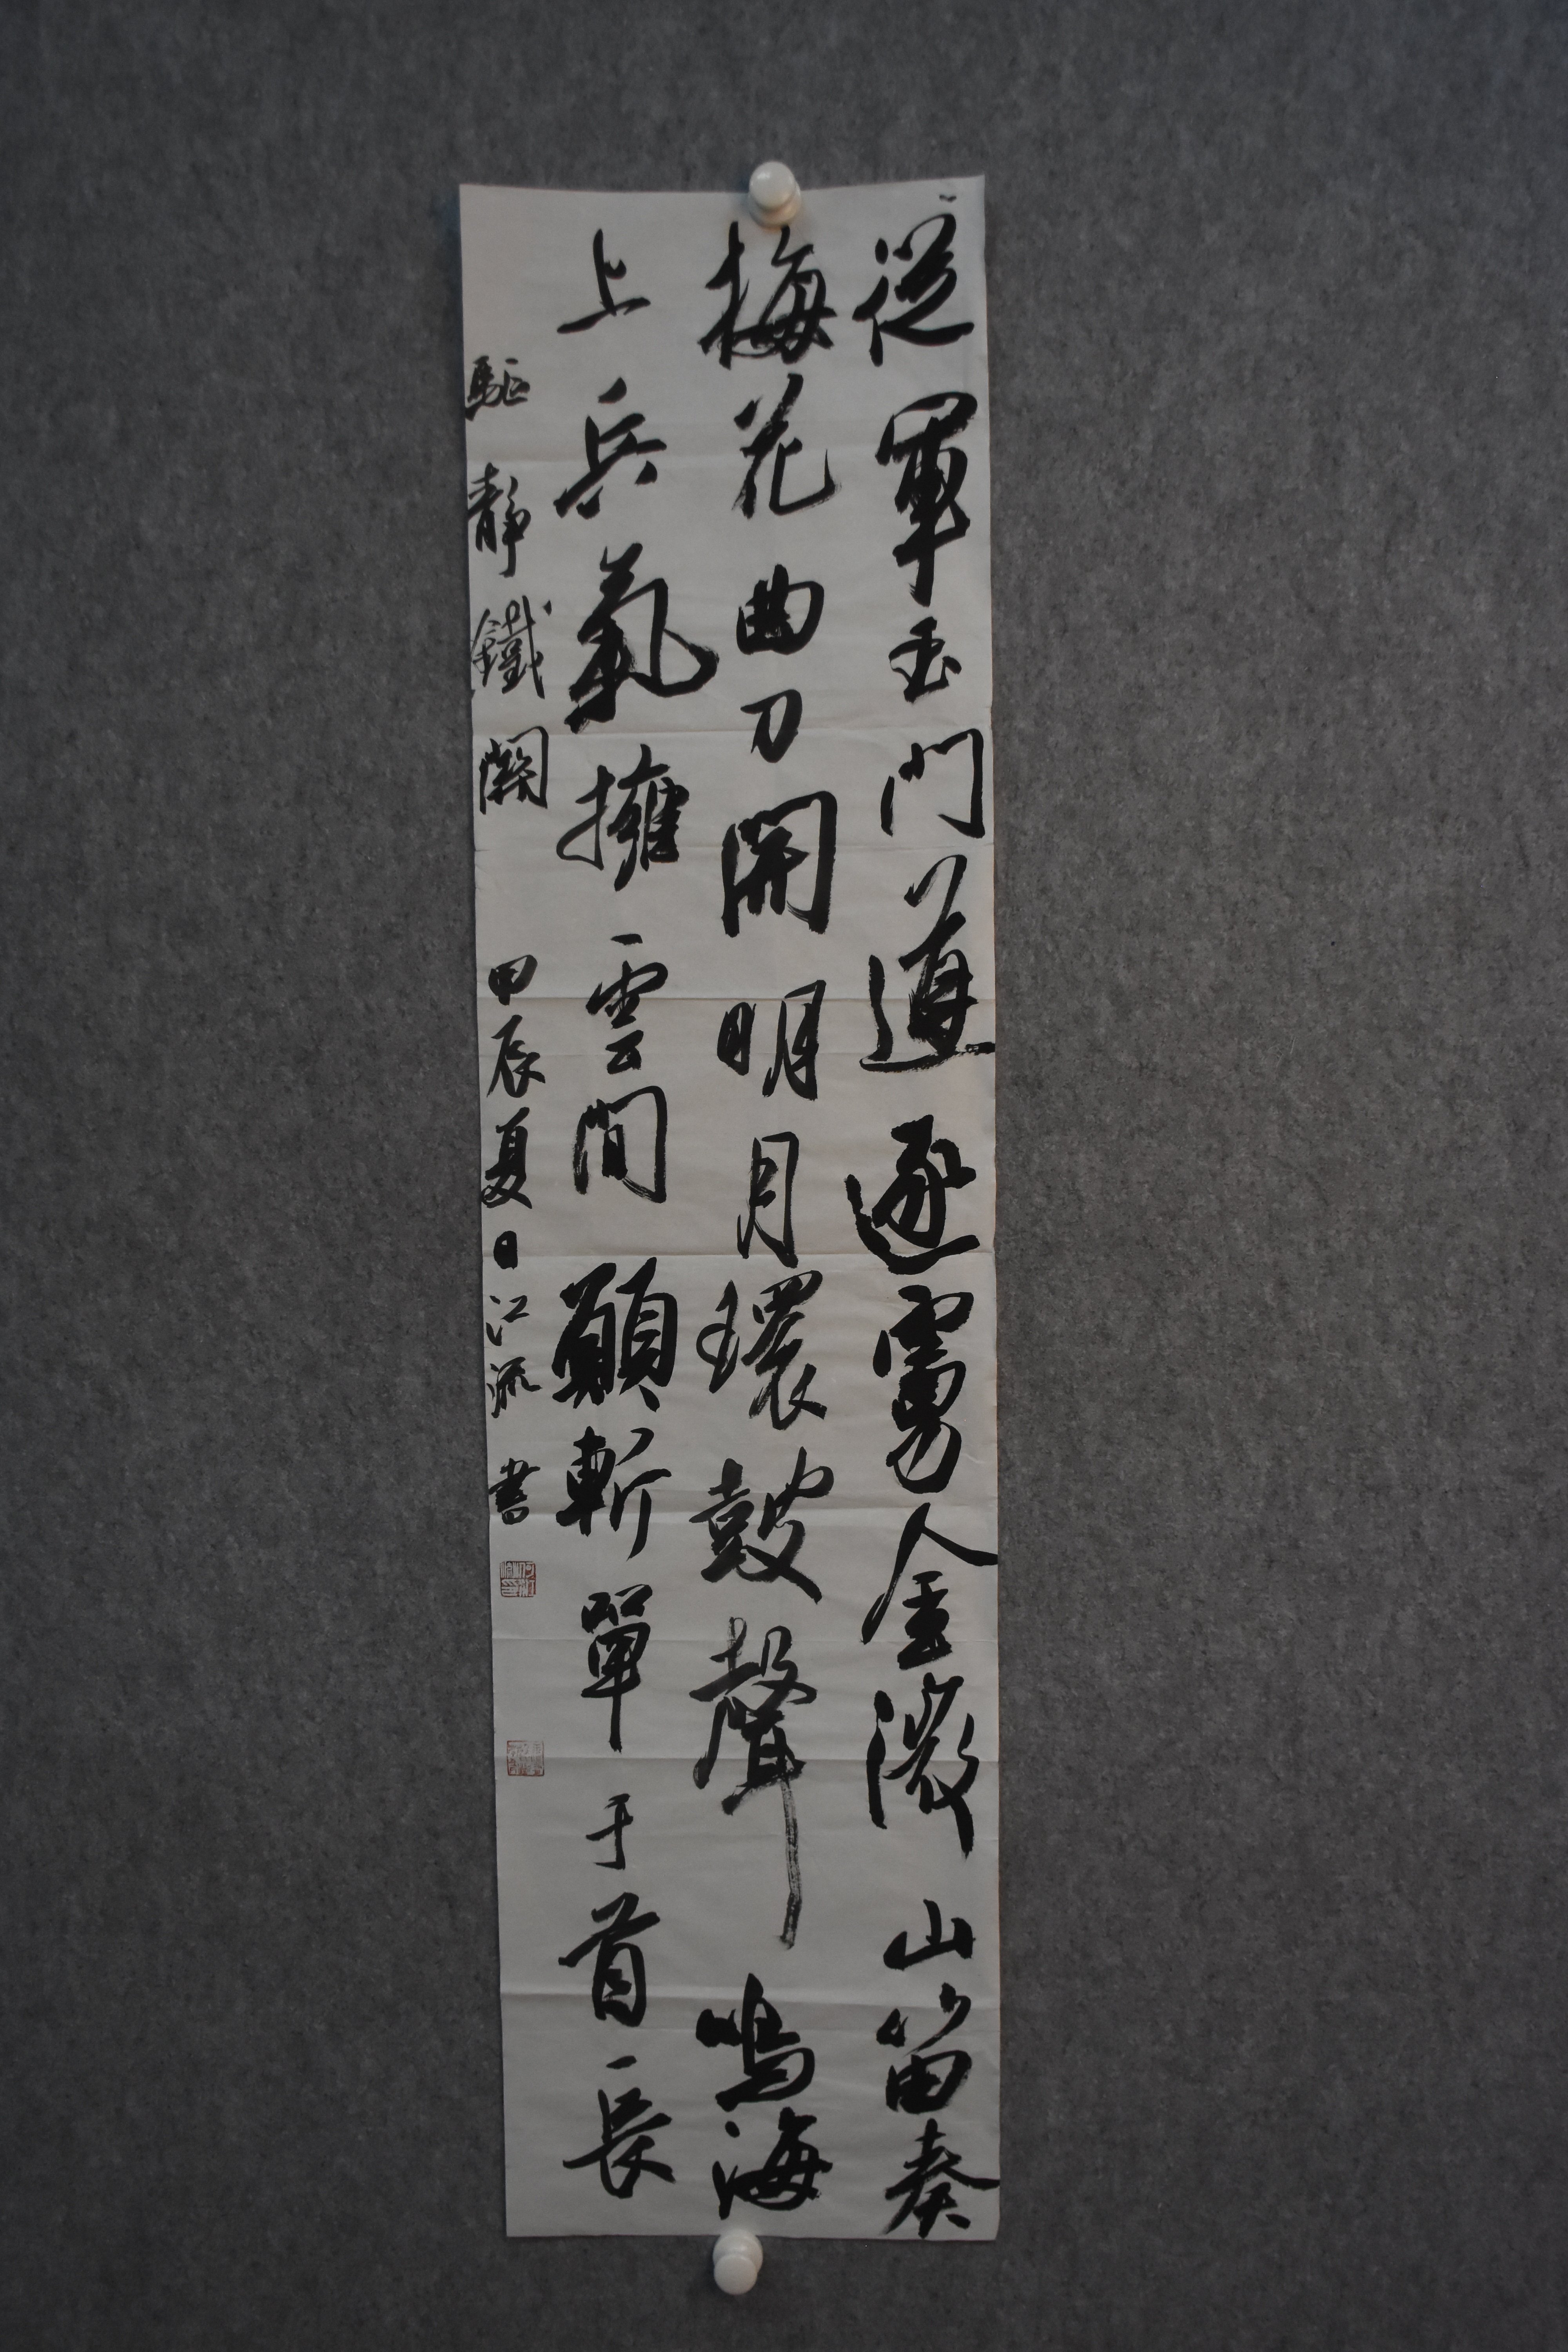 從軍玉門道逐虜金微山笛奏
梅花曲刀開明月環鼓聲鳴海
上兵氣擁雲間願斬單于首長
驅靜鐵關 甲辰夏日江流書